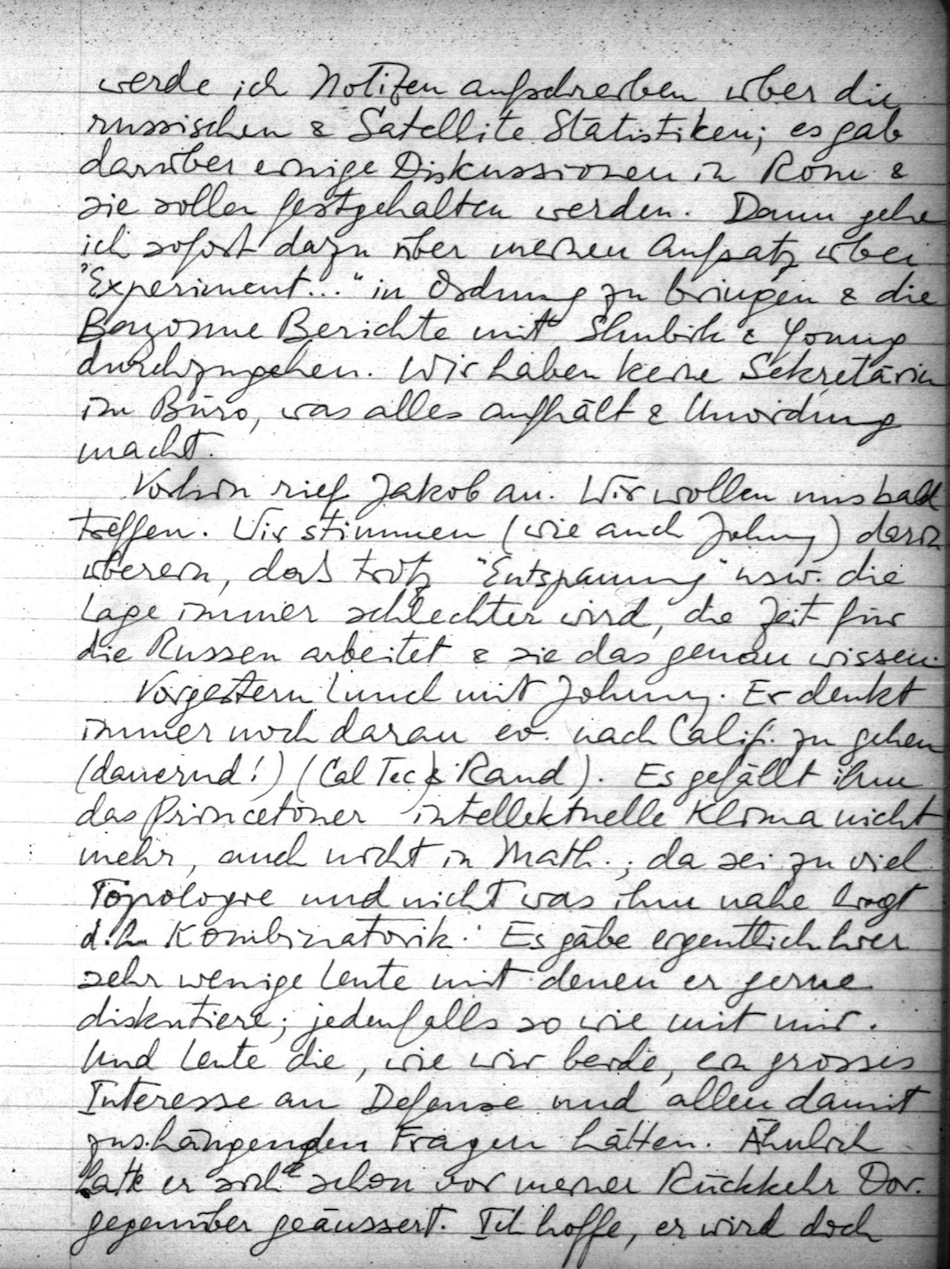 werde ich Notizen aufschreiben über die
russischen & Satellite Statistiken; es gab
darüber einige Diskussionen in Rom &
sie sollen festgehalten werden. Dann gehe
ich sofort dazu über meinen Aufsatz über
"Experiment..." in Ordnung zu bringen & die
Bayonne Berichte mit Shubik & Young
durchzugehen. Wir haben keine Sekretärin
im Büro, was alles aufhält & Unordnung
macht.
Vorhin rief Jakob an. Wir wollen uns bald
treffen. Wir stimmen (wie auch Johnny) darin
überein, dass trotz "Entspannung" usw. die
Lage immer schlechter wird, die Zeit für
die Russen arbeitet & sie das genau wissen.
Vorgestern Lunch mit Johnny. Er denkt
immer noch daran ev. nach Calif. zu gehen
(dauernd!) (Cal Tec & Rand). Es gefällt ihm
das Princetoner intellektuelle Klima nicht
mehr, auch nicht in Math.; da sei zu viel
Topologie und nicht was ihm nahe liegt
d.h. Kombinatorik. Es gäbe eigentlich hier
sehr wenige Leute mit denen er gerne
diskutiere; jedenfalls so wie mit mir.
Und Leute die, wie wir beide, ein grosses
Interesse an Defense und allen damit
zus.hängenden Fragen hätten. Ähnlich
hatte er sich schon vor meiner Rückkehr Dor.
gegenüber geäussert. Ich hoffe, er wird doch